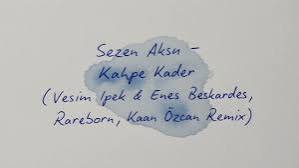 Sezen Aksu –
Kahpe Kader
(Vesim Ipek & Enes Beskardes,
Rareborn, Kaan Özcan Remix)